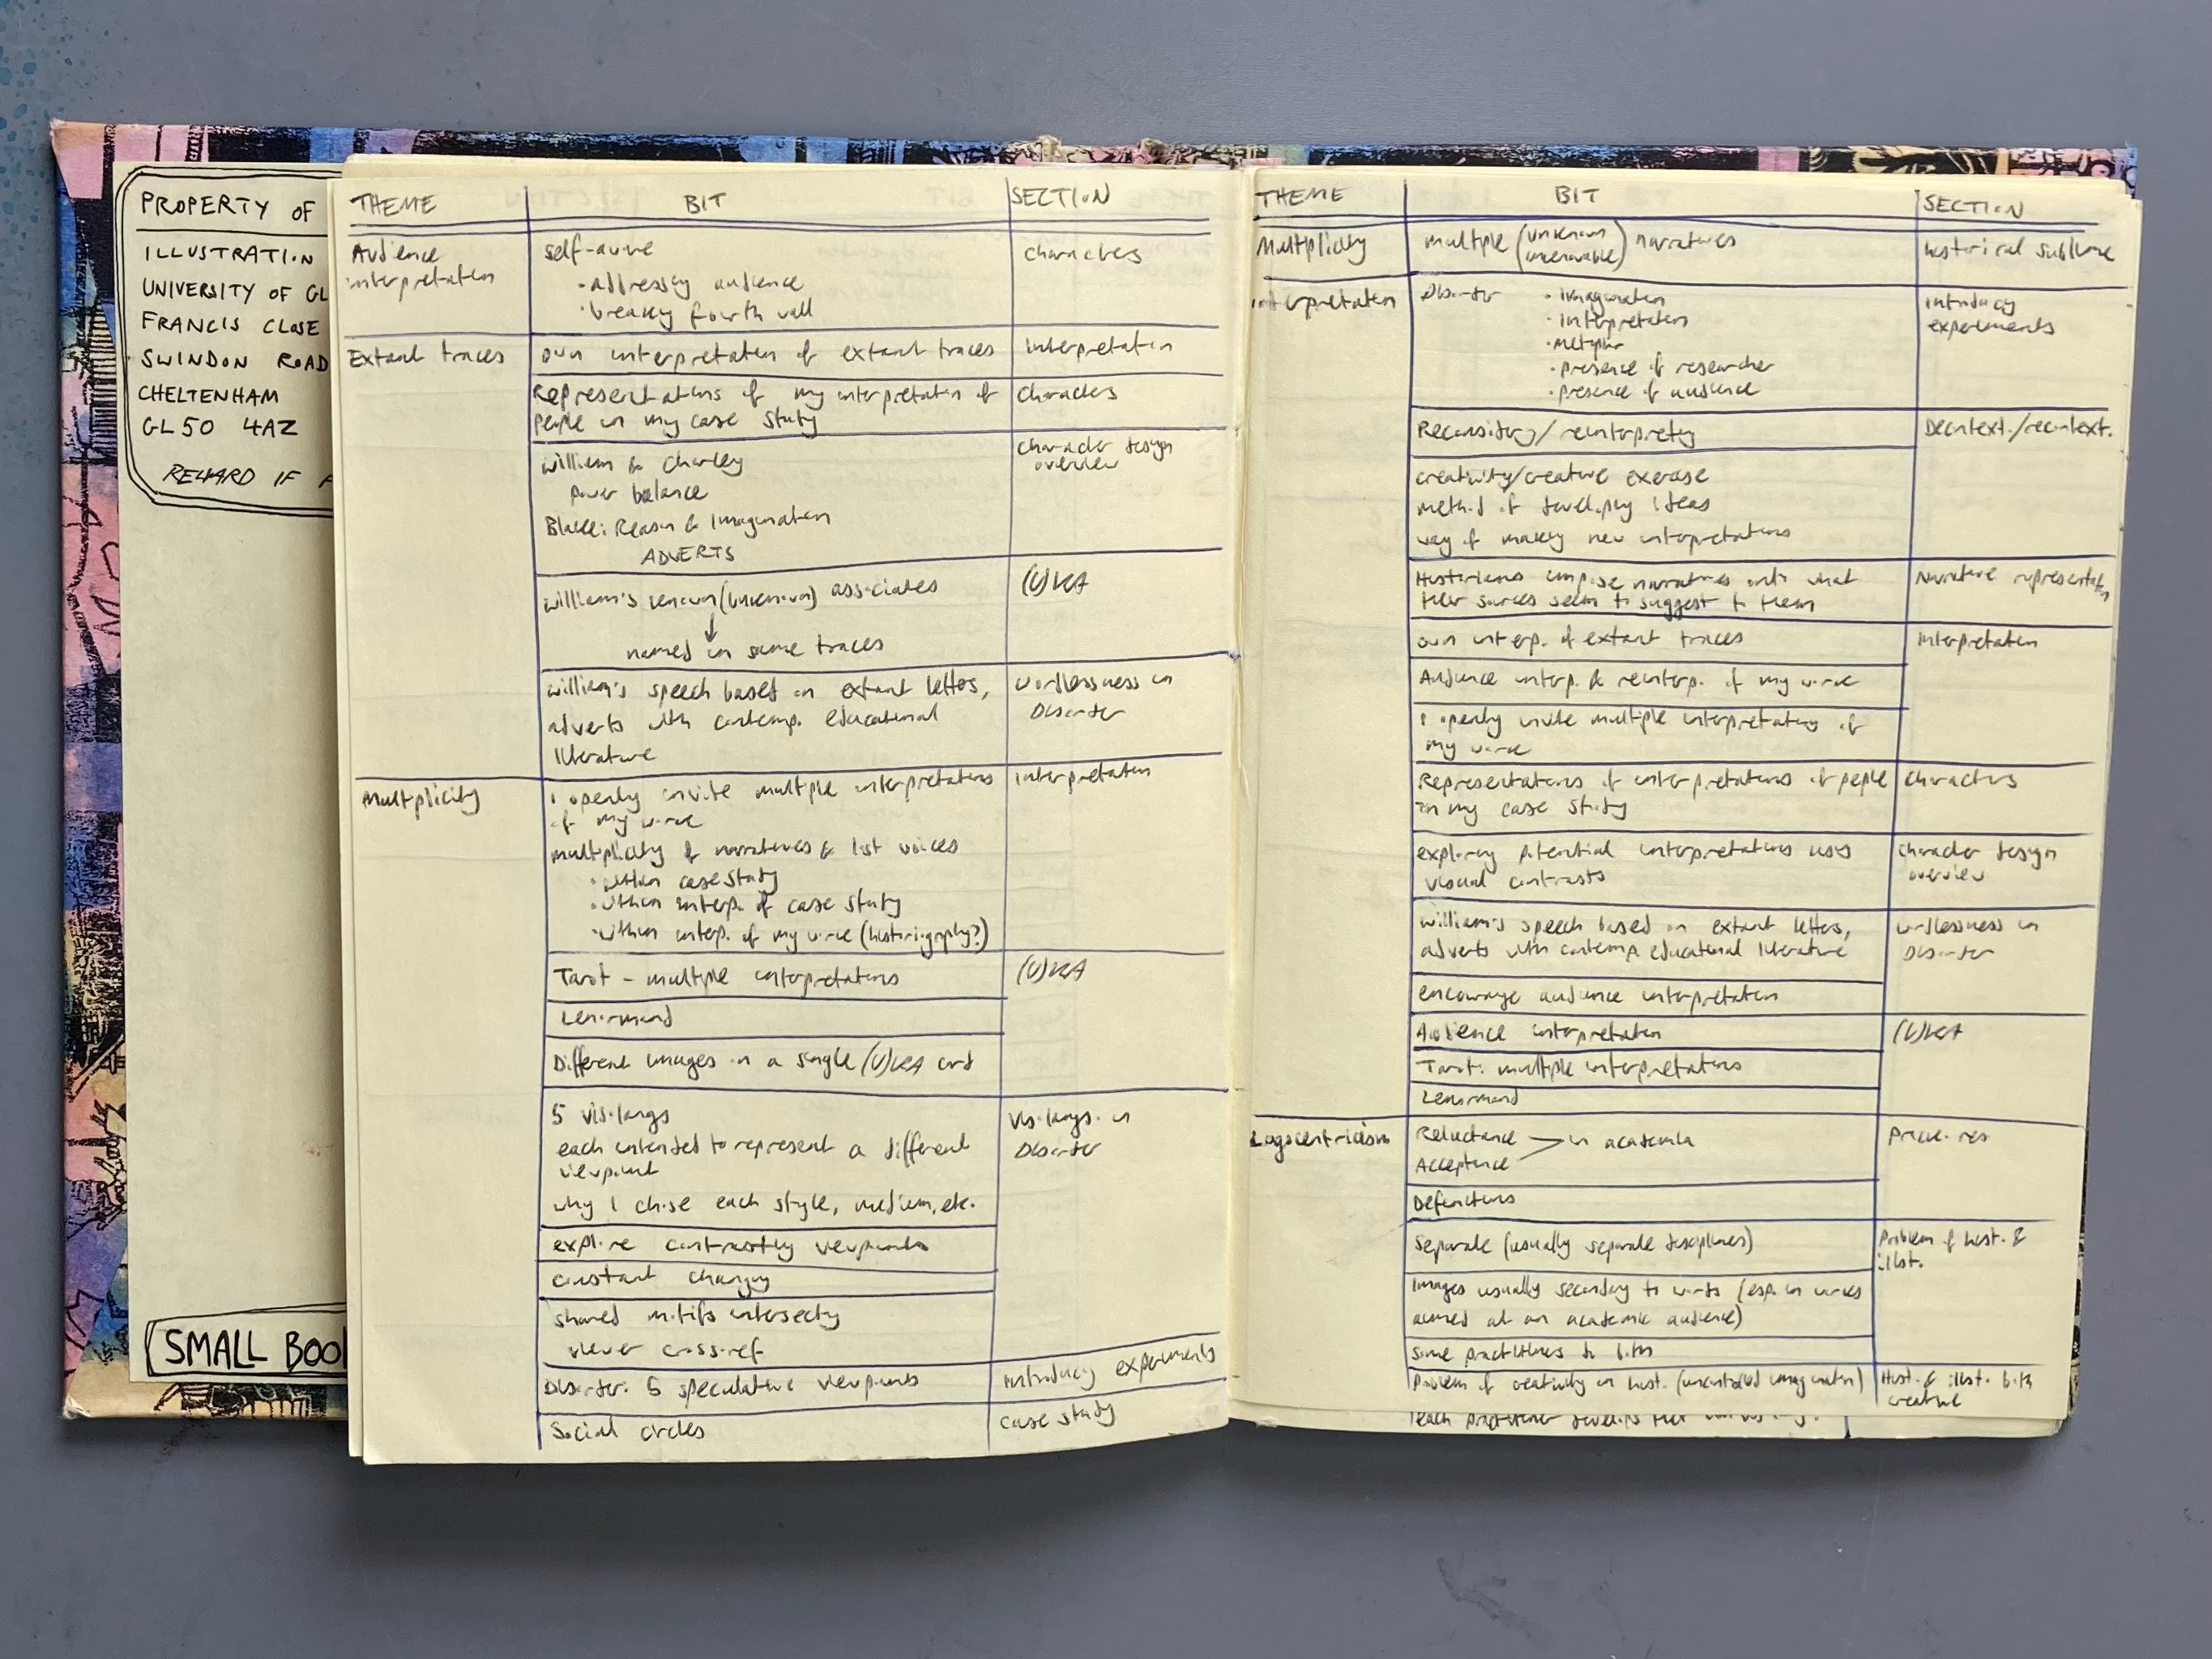 PROPERTY OF
ILLUSTRATION
UNIVERSITY OF GL
FRANCIS CLOSE
SWINDON ROAD
CHELTENHAM
GL50 4AZ
REWARD IF F
SMALL BOO
THEME BIT SECTION
Audience self-aware characters
interpretation · addressing audience
· breaking fourth wall
Extant traces own interpretation of extant traces Interpretation
Representations of my interpretation of characters
people in my case study
William & Charley character design
power balance overview
Blake: Reason & Imagination
ADVERTS
William's known (unknown) associates (U)KA
↓
named in some traces
William's speech based on extant letters, wordlessness in
adverts with contemp. educational Disorder
literature
Multiplicity I openly invite multiple interpretations Interpretation
of my work
multiplicity of narratives & lost voices
· within case study
· within interp. of case study
· within interp. of my work (historiography?)
Tarot – multiple interpretations (U)KA
Lenormand
Different images on a single (U)KA card
5 vis. langs vis. langs. in
each intended to represent a different Disorder
viewpoint
why I chose each style, medium, etc.
explore contrasting viewpoints
constant changing
shared motifs intersecting
viewer cross-ref
Disorder: 5 speculative viewpoints introducing experiments
Social circles case study
THEME BIT SECTION
Multiplicity multiple (unknown unknowable) narratives historical sublime
Interpretation Disorder · imagination introducing
· interpretation experiments
· metaphor
· presence of researcher
· presence of audience
Reconsidering/reinterpreting Decontext./recontext.
creativity/creative exercise
method of developing ideas
way of making new interpretations
Historians impose narratives onto what Narrative representation
their sources seem to suggest to them
own interp. of extant traces Interpretation
Audience interp. & reinterp. of my work
I openly invite multiple interpretations of
my work
Representations of interpretations of people characters
in my case study
exploring potential interpretations uses character design
visual contrasts overview
William's speech based on extant letters, wordlessness in
adverts with contemp. educational literature Disorder
encourage audience interpretation
Audience interpretation (U)KA
Tarot: multiple interpretations
Lenormand
Logocentricism Reluctance in academia res
Acceptance
Definitions
Separate (usually separate disciplines) Problem of hist. &
illst.
Images usually secondary to words (esp. in works
aimed at an academic audience)
Some practitioners do both
Problem of creativity in hist. (uncontrolled imagination) Hist. & illst. both
creative
each practitioner develops their